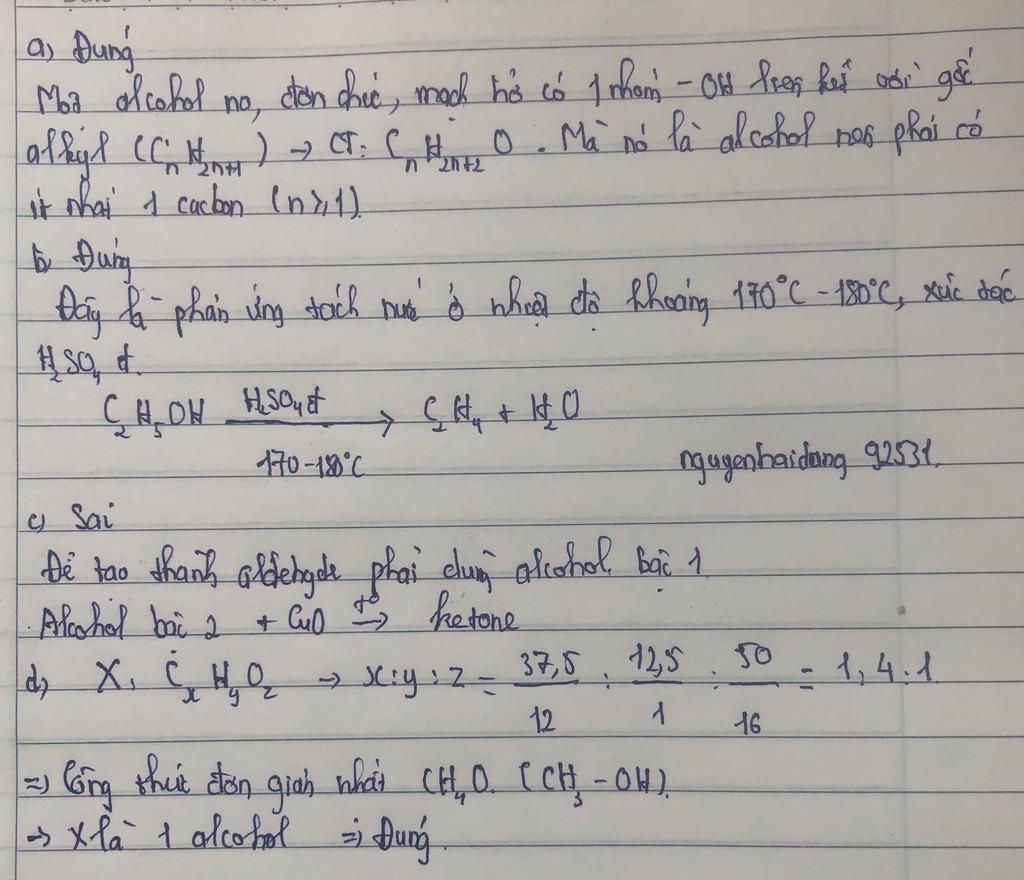 a) Đúng
Mọi alcohol no, đơn chức, mạch hở có 1 nhóm -OH liên kết với gốc
alkyl (CnH2n+1) → CT: CnH2n+2O. Mà nó là alcohol nên phải có
ít nhất 1 cacbon (n≥1).
b) Đúng
Đây là phản ứng tách nước ở nhiệt độ khoảng 170°C - 180°C, xúc tác
H2SO4 đ.
C2H5OH H2SO4đ → C2H4 + H2O
170-180°C nguyenhaidang 92531.
c) Sai
Để tạo thành aldehyde phải dùng alcohol bậc 1
Alcohol bậc 2 + CuO t° → ketone
d) X: CxHyOz → x:y:z = 37,5/12 : 12,5/1 : 50/16 = 1:4:1
=> Công thức đơn giản nhất CH4O. (CH3-OH).
→ X là 1 alcohol => Đúng.